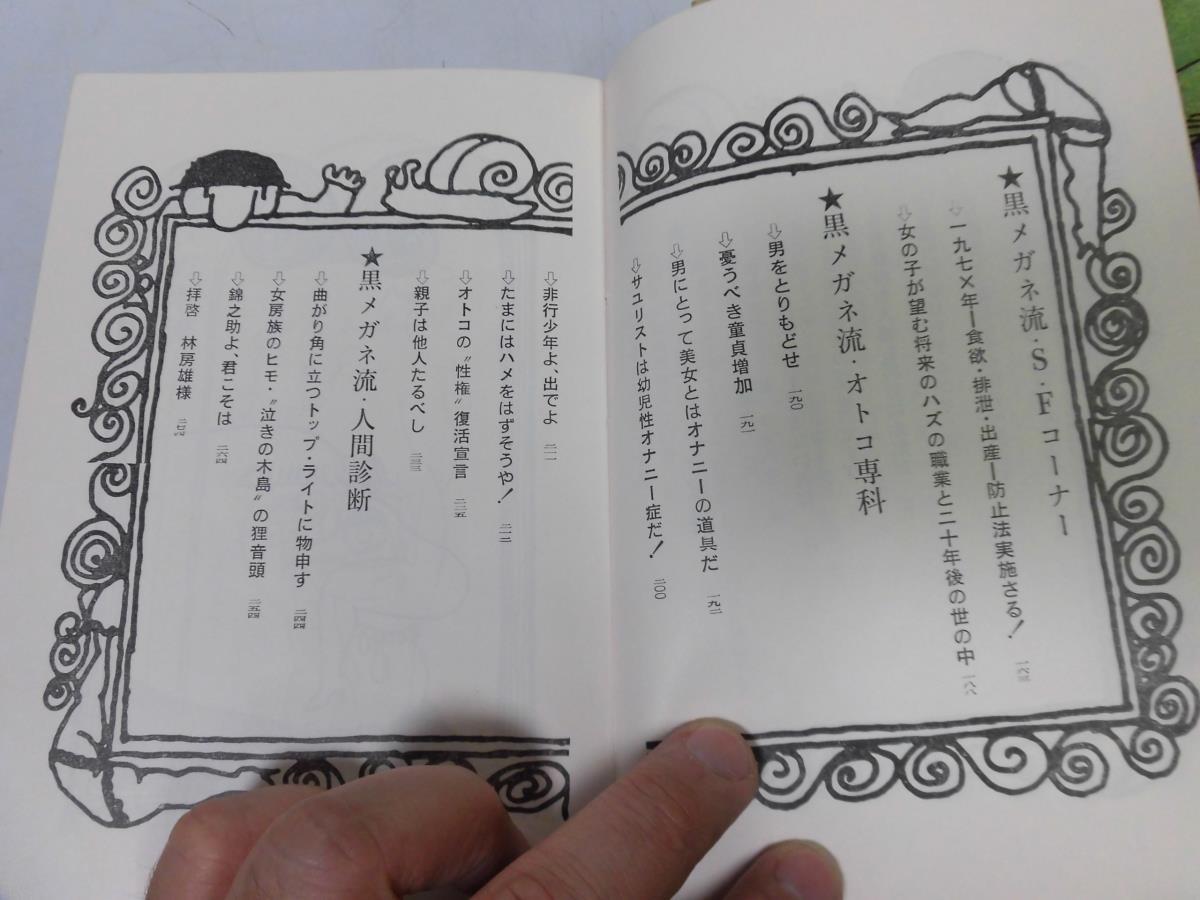 ★黒メガネ流・S・Fコーナー
⇩一九七×年―食欲・排泄・出産―防止法実施さる！ 一六三
⇩女の子が望む将来のハズの職業と二十年後の世の中 一八八
★黒メガネ流・オトコ専科
⇩男をとりもどせ 一九〇
⇩憂うべき童貞増加 一九一
⇩男にとって美女とはオナニーの道具だ 一九二
⇩サユリストは幼児性オナニー症だ！ 二〇〇
⇩非行少年よ、出でよ 二一一
⇩たまにはハメをはずそうや！ 二一三
⇩オトコの〝性権〟復活宣言 二二五
⇩親子は他人たるべし 二三三
★黒メガネ流・人間診断
⇩曲がり角に立つトップ・ライトに物申す 二四四
⇩女房族のヒモ・〝泣きの木島〟の狸音頭 二五四
⇩錦之助よ、君こそは 二六四
⇩拝啓 林房雄様 二七四